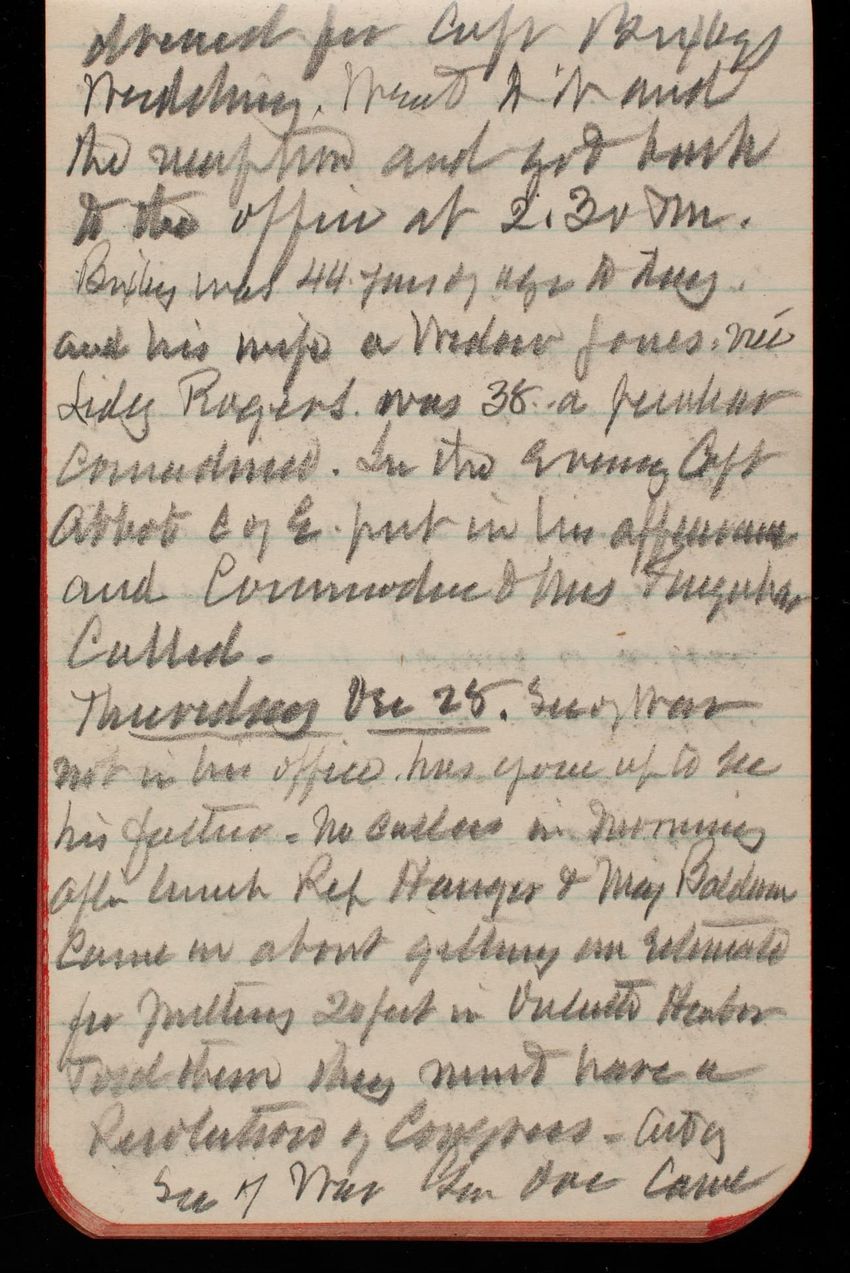 dressed for Capt Bixbys
Wedding. Went to it and
the reception and got back
to the office at 2.30 Pm.
Bixby was 44 years of age to day.
and his wife a Widow Jones. née
Lidy Rogers. was 38. a peculiar
Coincidence. In the Evening Capt
Abbot C of E. put in his appearance
and Commodore & Mrs Farquhar
Called -
Thursday Dec 28. Sec of War
not in his office. has gone up to see
his father - No callers in morning
after lunch Rep Hauger & Maj Baldwin
Came in about getting an Estimate
for putting 20 feet in Duluth Harbor
Told them they must have a
Resolution of Congress - Acting
Sec of War Gen Doe Came